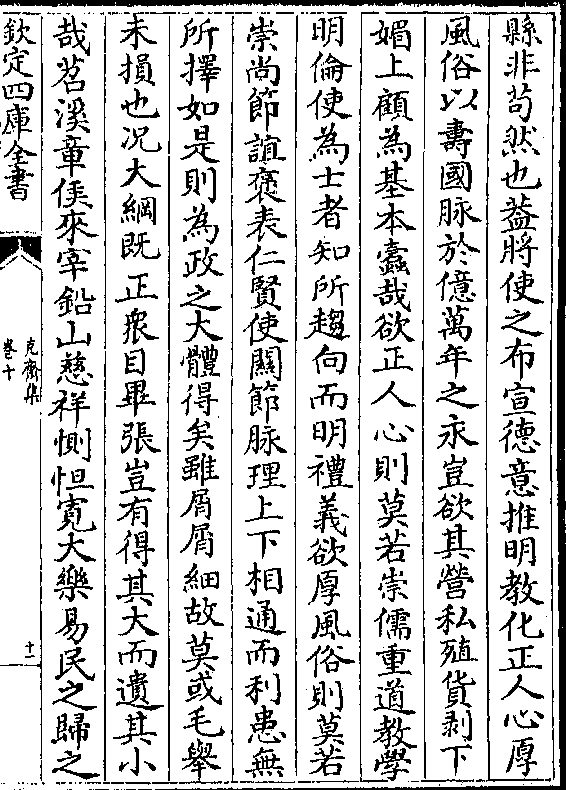 縣非苟然也葢將使之布宣德意推明教化正人心厚
風俗以壽國脉於億萬年之永豈欲其營私殖貨剥下
媚上顧為基本蠧哉欲正人心則莫若崇儒重道教學
明倫使為士者知所趨向而明禮義欲厚風俗則莫若
崇尚節誼褒表仁賢使闗節脉理上下相通而利患無
所擇如是則為政之大體得矣雖屑屑細故莫或毛舉
未損也况大綱既正衆目畢張豈有得其大而遺其小
哉苕溪章侯來宰鉛山慈祥惻怛寛大樂易民之歸之
欽定四庫全書
克齋集
卷十
十一